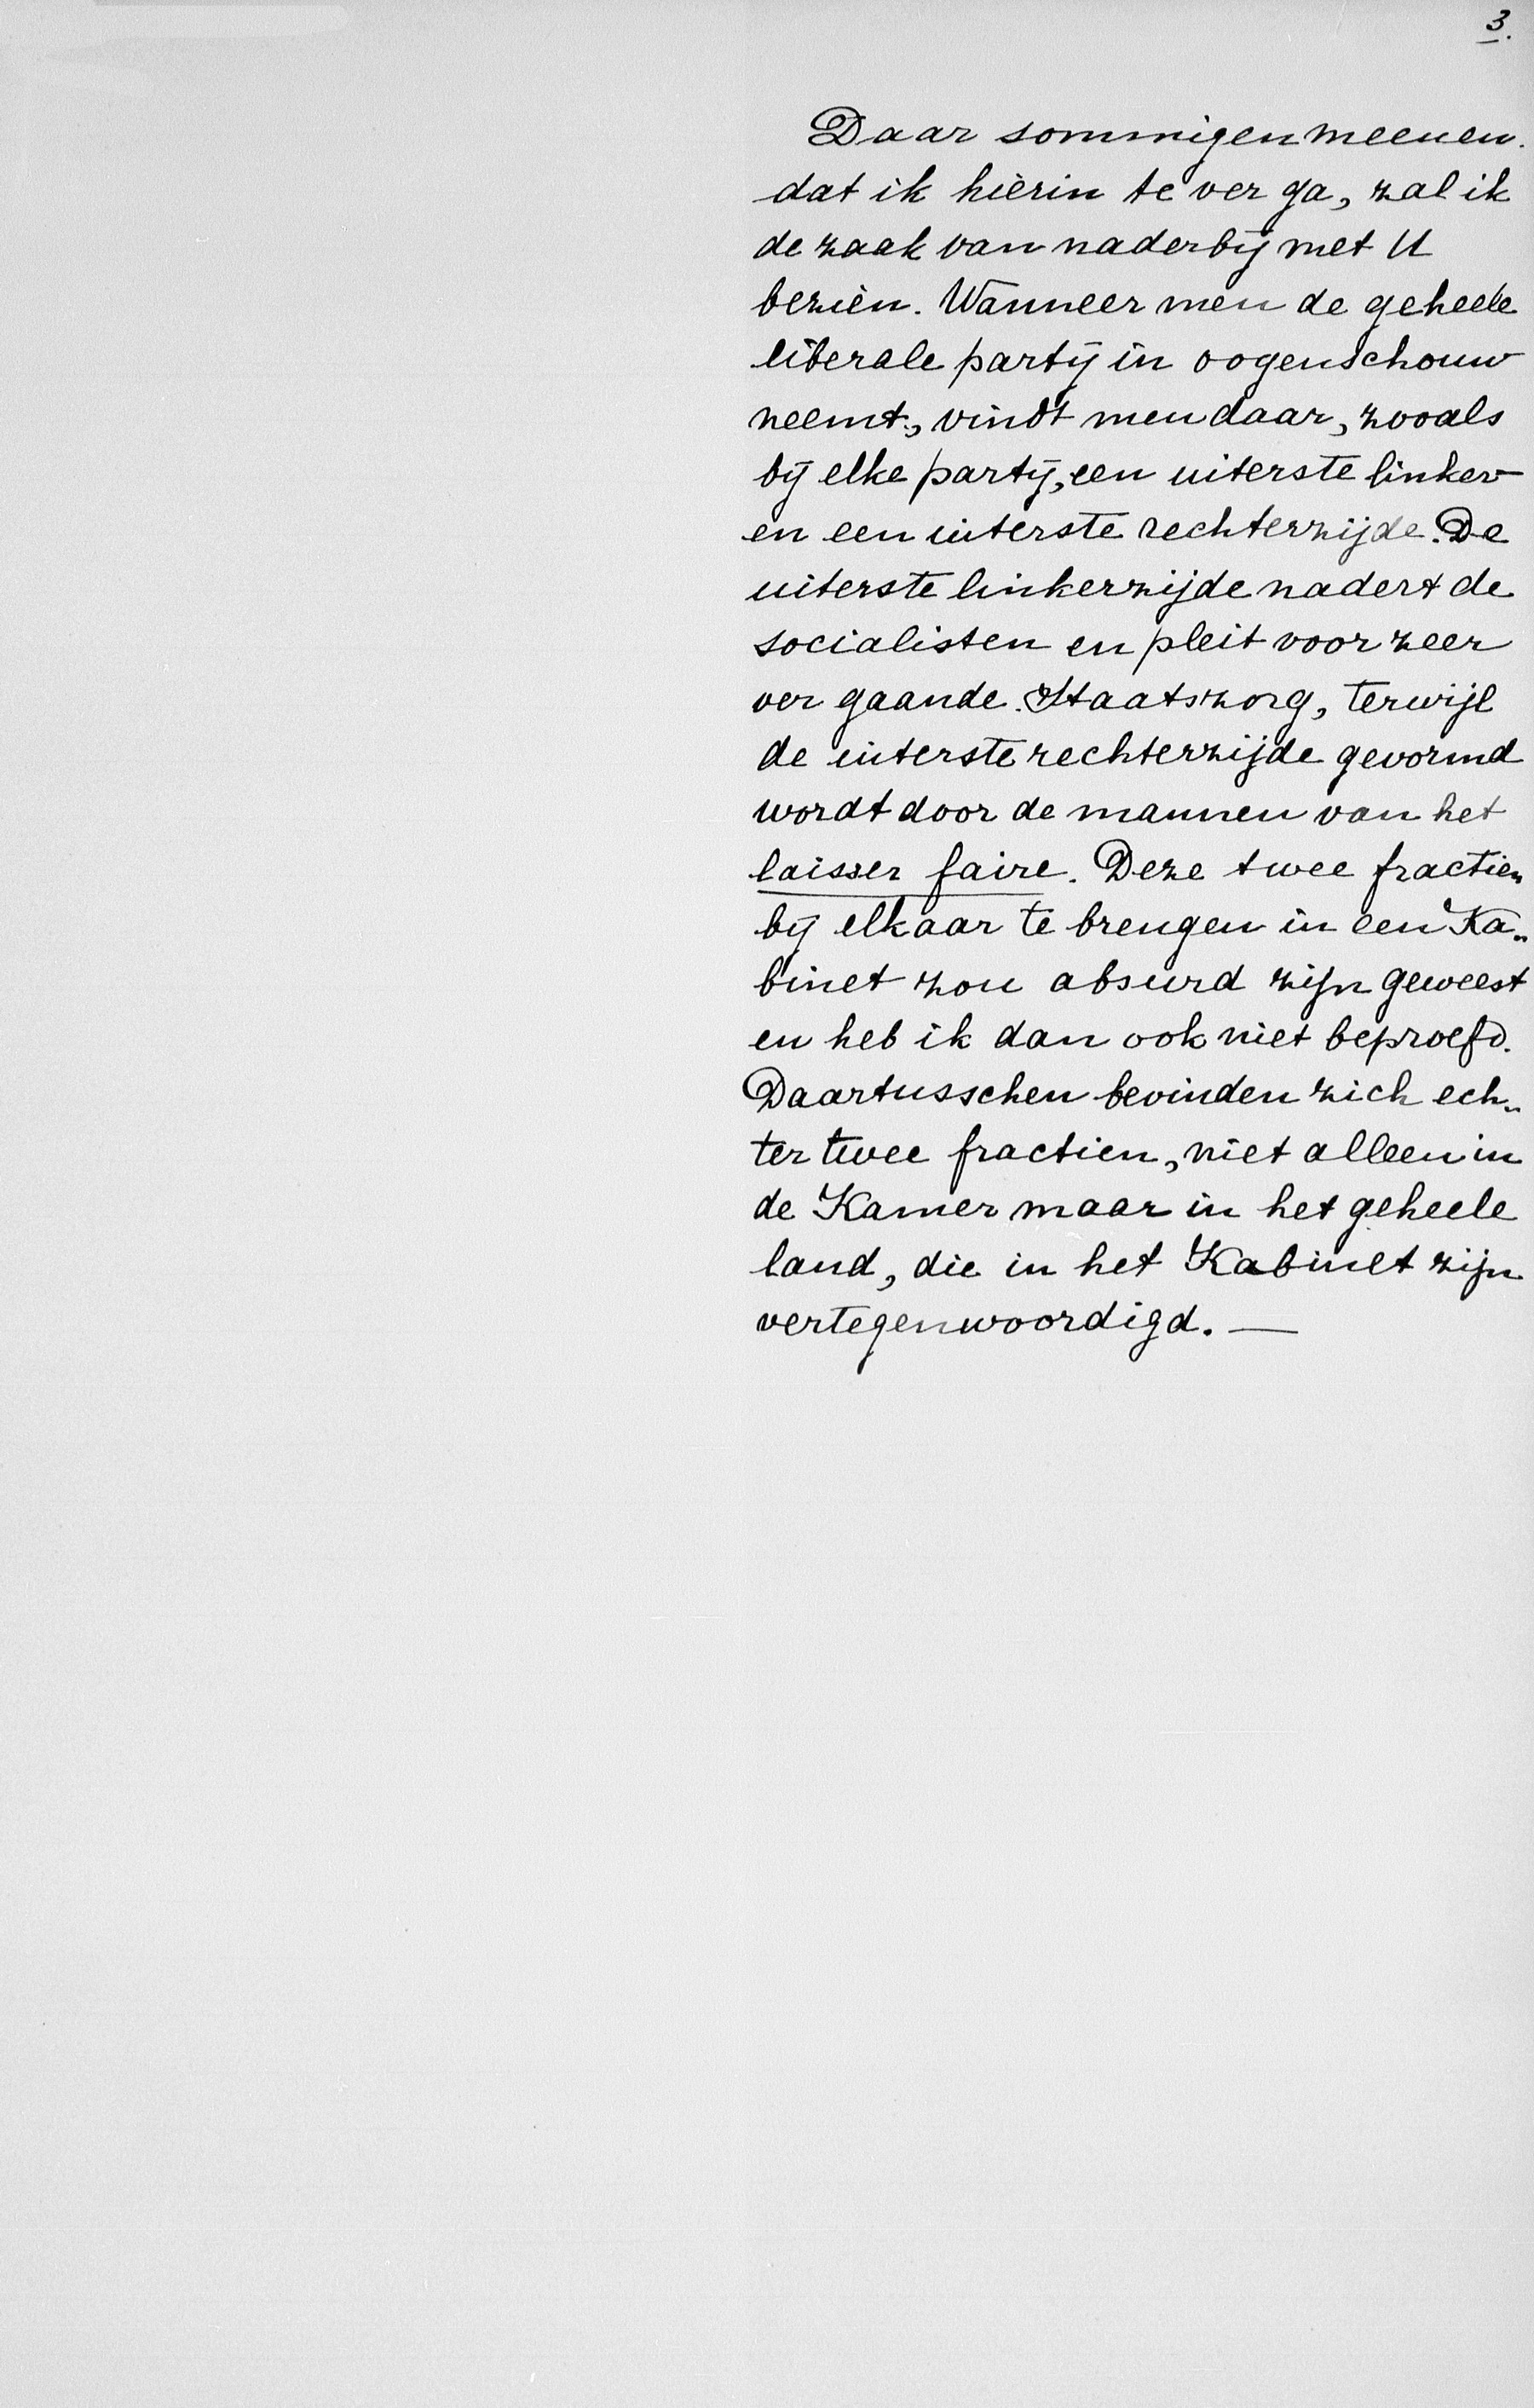 3.
Daar sommigen meenen
dat ik hierin te ver ga, zal ik
de zaak van naderbij met U
bezien. Wanneer men de geheele
liberale partij in oogenschouw
neemt, vindt men daar, zooals
bij elke partij, een uiterste linker-
en een uiterste rechterzijde. De
uiterste linkerzijde nadert de
socialisten en pleit voor zeer
ver gaande Staatszorg, terwijl
de uiterste rechterzijde gevormd
wordt door de mannen van het
laisser faire. Deze twee fractien
bij elkaar te brengen in een Ka-
binet zou absurd zijn geweest
en heb ik dan ook niet beproefd.
Daartusschen bevinden zich ech-
ter twee fractien, niet alleen in
de Kamer maar in het geheele
land, die in het Kabinet zijn
vertegenwoordigd. —